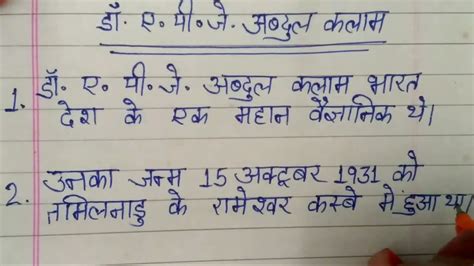 डॉ. ए. पी. जे. अब्दुल कलाम
1. डॉ. ए. पी. जे. अब्दुल कलाम भारत
देश के एक महान वैज्ञानिक थे।
2. उनका जन्म 15 अक्टूबर 1931 को
तमिलनाडु के रामेश्वर कस्बे में हुआ था।